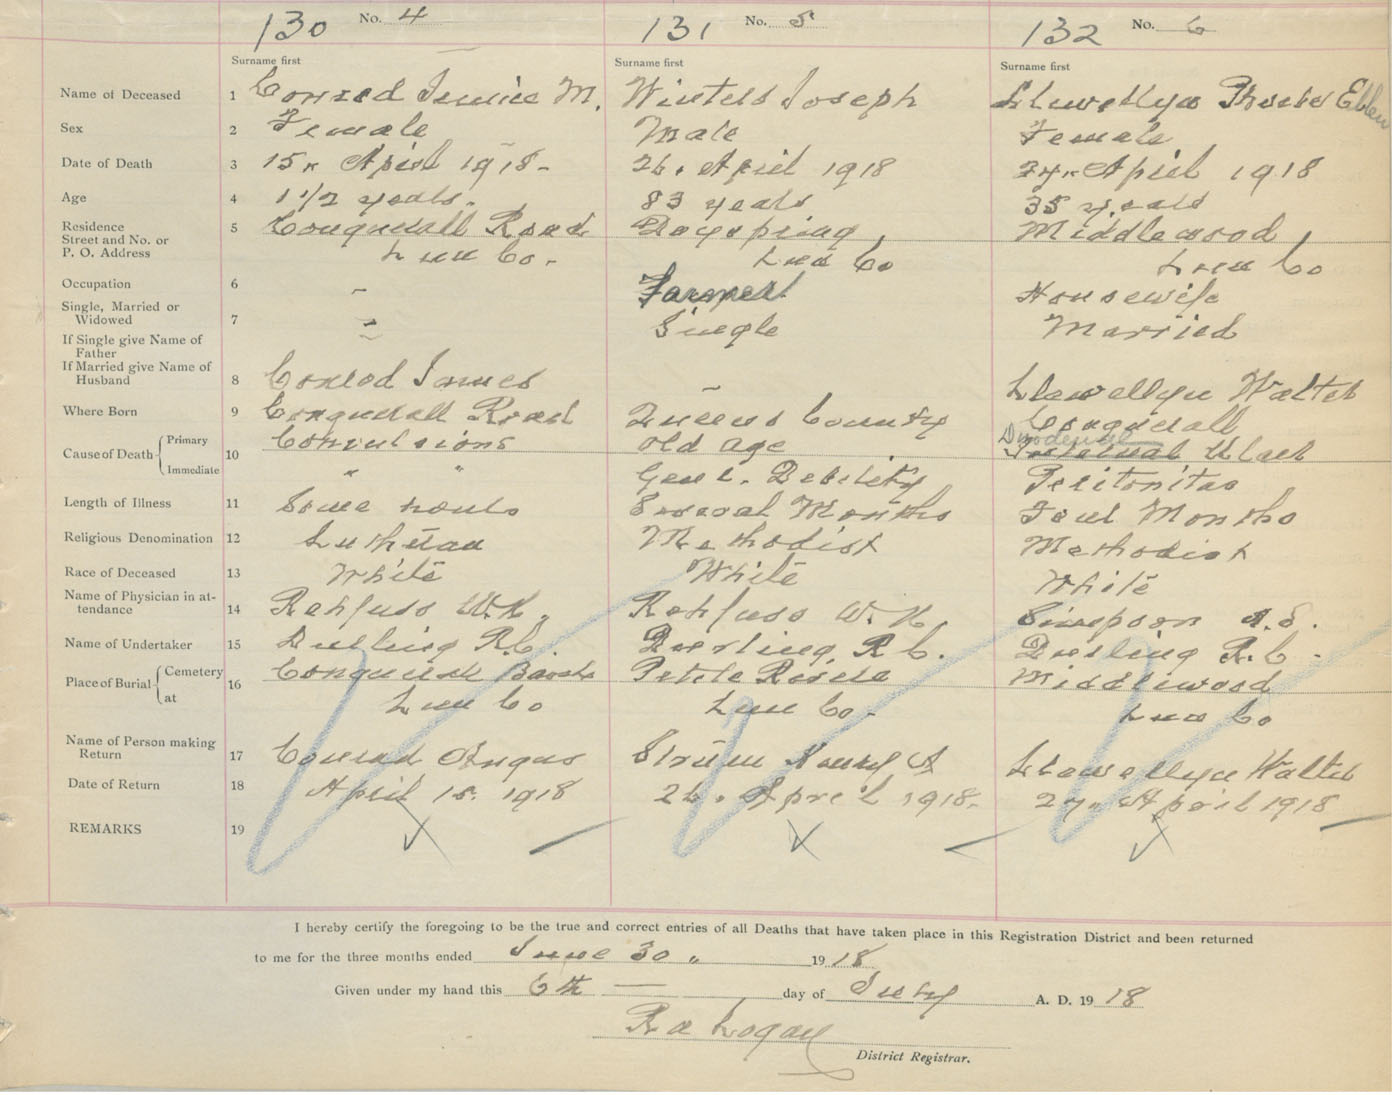 130 No. 4 131 No. 5 132 No. 6
Surname first Surname first Surname first
Name of Deceased 1 Conrad M. Winters Joseph Llewellyn Ellen
Sex 2 Female Male Female
Date of Death 3 15 April 1918 26. April 1918 27 April 1918
Age 4 1 1/2 years. 83 years 35 years
Residence
Street and No. or
P. O. Address 5 Conquerall Road Dayspring, Middlewood,
Lun Co. Lun Co Lun Co
Occupation 6 - Farmer Housewife
Single, Married or
Widowed 7 - Single Married
If Single give Name of
Father
If Married give Name of
Husband 8 Conrod James - Llewellyn Walter
Where Born 9 Conquerall Road Queens County Conquerall
Cause of Death Primary 10 Convulsions Old Age Duodenal Ulcer
Immediate " " Genl. Debility Peritonitas
Length of Illness 11 Some hours Several Months Four Months
Religious Denomination 12 Lutheran Methodist Methodist
Race of Deceased 13 White White White
Name of Physician in at-
tendance 14 Rehfuss W.N. Rehfuss W. N. Simpson
Name of Undertaker 15 R.C. R C. R. C.
Place of Burial Cemetery 16 Conquerall Petite Riviere Middlewood
at Lun Co Lun Co. Lun Co
Name of Person making
Return 17 Conrad Angus A Llewellyn Walter
Date of Return 18 April 15. 1918 26. April 1918. 27 April 1918
REMARKS 19
I hereby certify the foregoing to be the true and correct entries of all Deaths that have taken place in this Registration District and been returned
to me for the three months ended June 30 " 1918
Given under my hand this 6th day of July A. D. 1918
R a Logan
District Registrar.